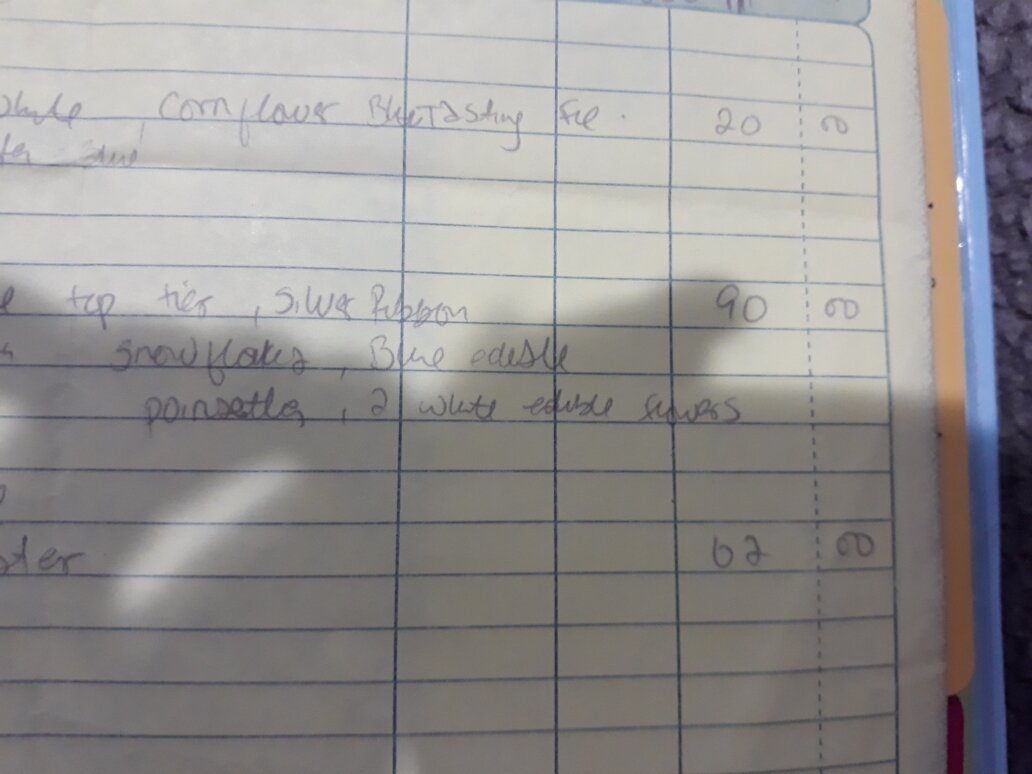 Cornflower Blue Tasting fee. 20 00
top tier, Silver Ribbon 90 00
Snowflakes, Blue edible
poinsettia, 2 white edible flowers
62 00